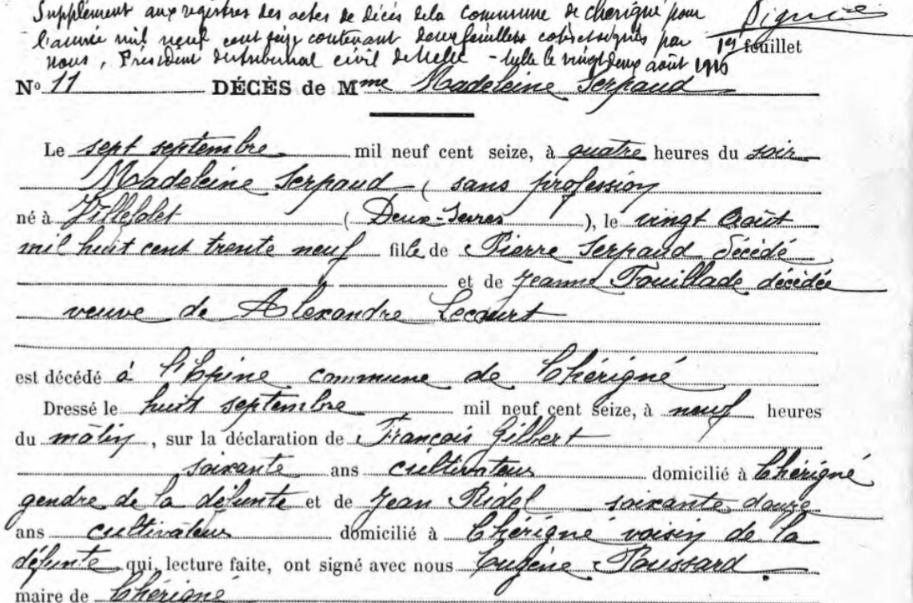 Supplément aux registres des actes de décès de la commune de Chérigné pour
l'année mil neuf cent seize contenant deux feuillets cotés et signés par
nous, Président du tribunal civil de Melle - Melle le vingt deux août 1916
1er feuillet
No 11 DÉCÈS de Mme Madeleine Serpaud
Le sept septembre mil neuf cent seize, à quatre heures du soir
Madeleine Serpaud (sans profession
né à Villefolet (Deux-Sèvres), le vingt Août
mil huit cent trente neuf fille de Pierre Serpaud décédé
et de Jeanne Fouillade décédée
veuve de Alexandre Lecourt
est décédé à l'Epine commune de Chérigné
Dressé le huit septembre mil neuf cent seize, à neuf heures
du matin, sur la déclaration de François Gilbert
soixante ans cultivateur domicilié à Chérigné
gendre de la défunte et de Jean Bidel soixante douze
ans cultivateur domicilié à Chérigné voisin de la
défunte qui, lecture faite, ont signé avec nous Eugène Poussard
maire de Chérigné